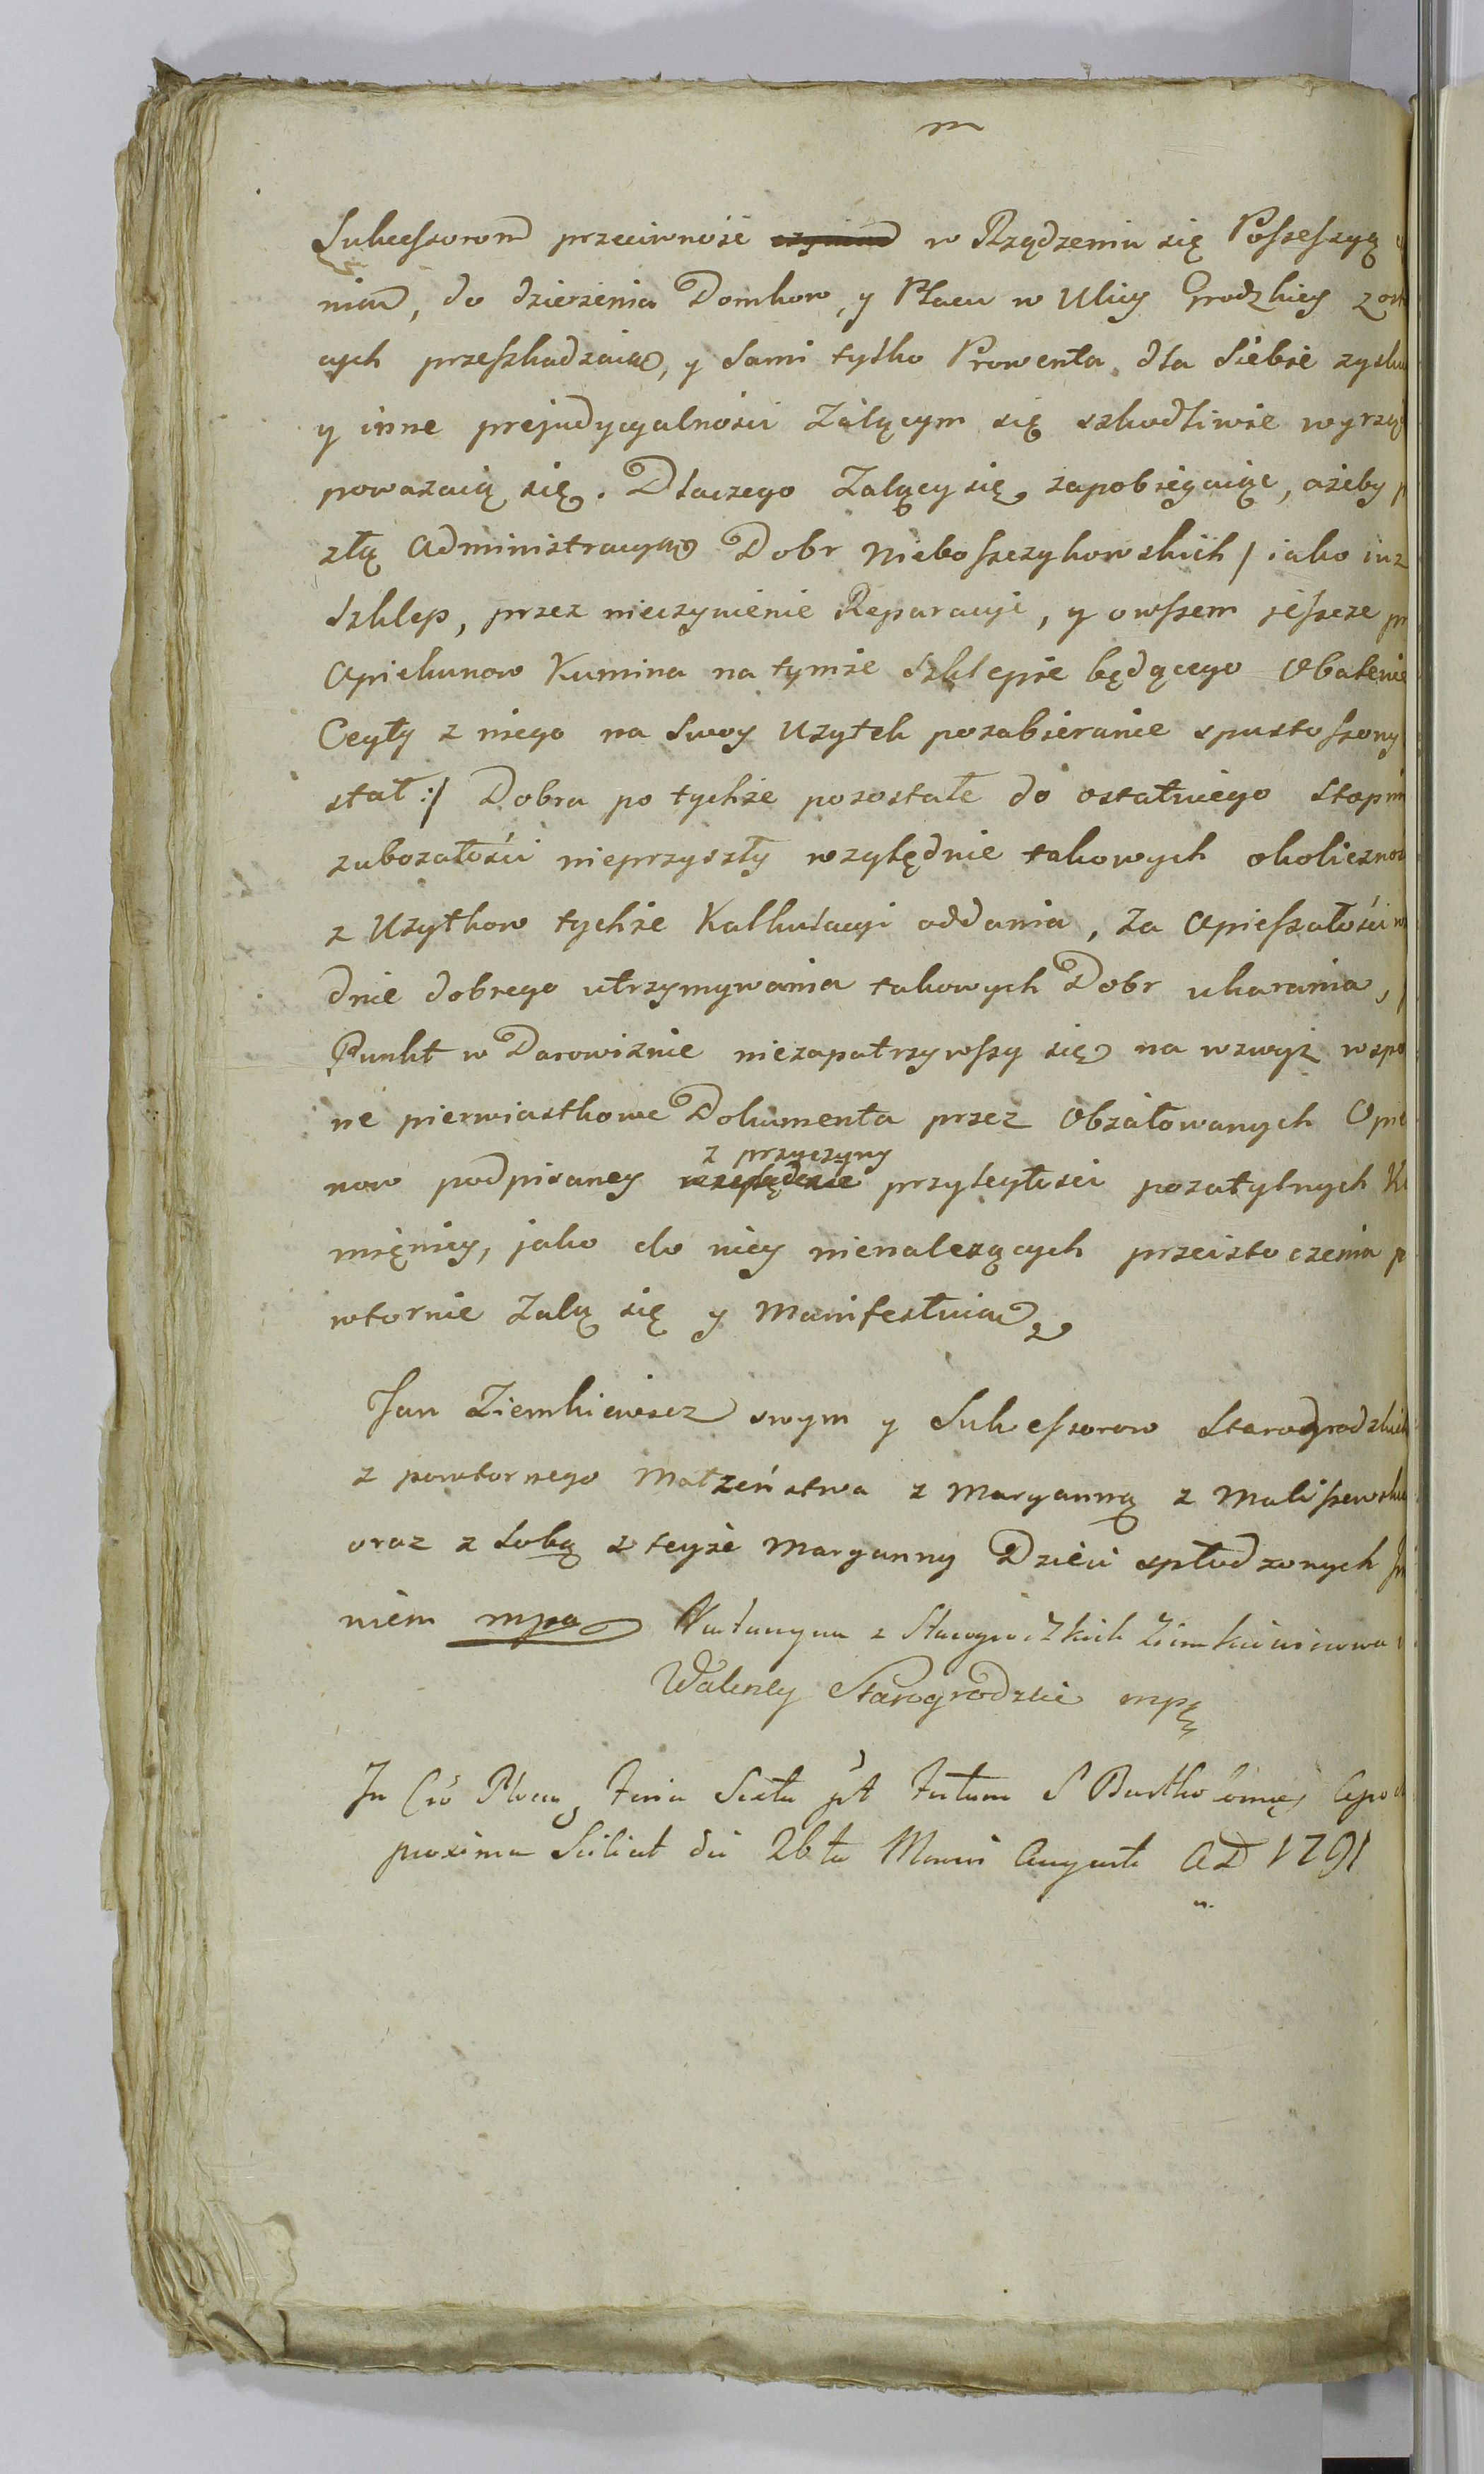 Sukcessorom przeciwnośc czynią w Rządzeniu się Possessyą
nią, do dzierzenia Domkow, y Placu w Ulicy Grodzkiey
cych przeszkadzaią, y Sami tylko Prowenta dla Siebie
y inne prejudycyalności Zalącym się szkodliwie
powazaią się. Dlaczego Zalący się, zapobiegaiąc, azeby
złą Administracyą Dobr Nieboszczykowskich / iako
Szklep, przez nieczynienie Reparacyi, y owszem jeszcze
Opiekunow Kumina na tymze Szklepie będącego Obalenie
Cegły z niego na Swoy Uzytek pozabieranie spustoszony
stał :/ Dobra po tychze pozostałe do ostatniego
zubozałości nieprzyszły względnie takowych
z Uzytkow tychze Kalkulacyi oddania, za Opieszałości
dnie dobrego utrzymywania takowych Dobr ukarania,
Punkt w Darowiznie niezapatrzywszy się na wzwyz
ne pierwiastkowe Dokumenta przez Obzałowanych
z przyczyny
now podpisaney względnie przyległości pozatylnych
mięnicy, jako do niey nienalezących przeistoczenia
wtornie Zalą się y Manifestuią
Jan Ziemkiewicz swym y Sukcessorow Starogrodzkich
z powtornego Małzeństwa z Maryanną z
oraz z Sobą z teyze Maryanny Dzieci spłodzonych
niem mpa Katarzyna z Starogrodzkich
Walenty Starogrodzki mp
In Feria Sexta S Bartholomęi
proxima die 26ta Augusti AD 1791